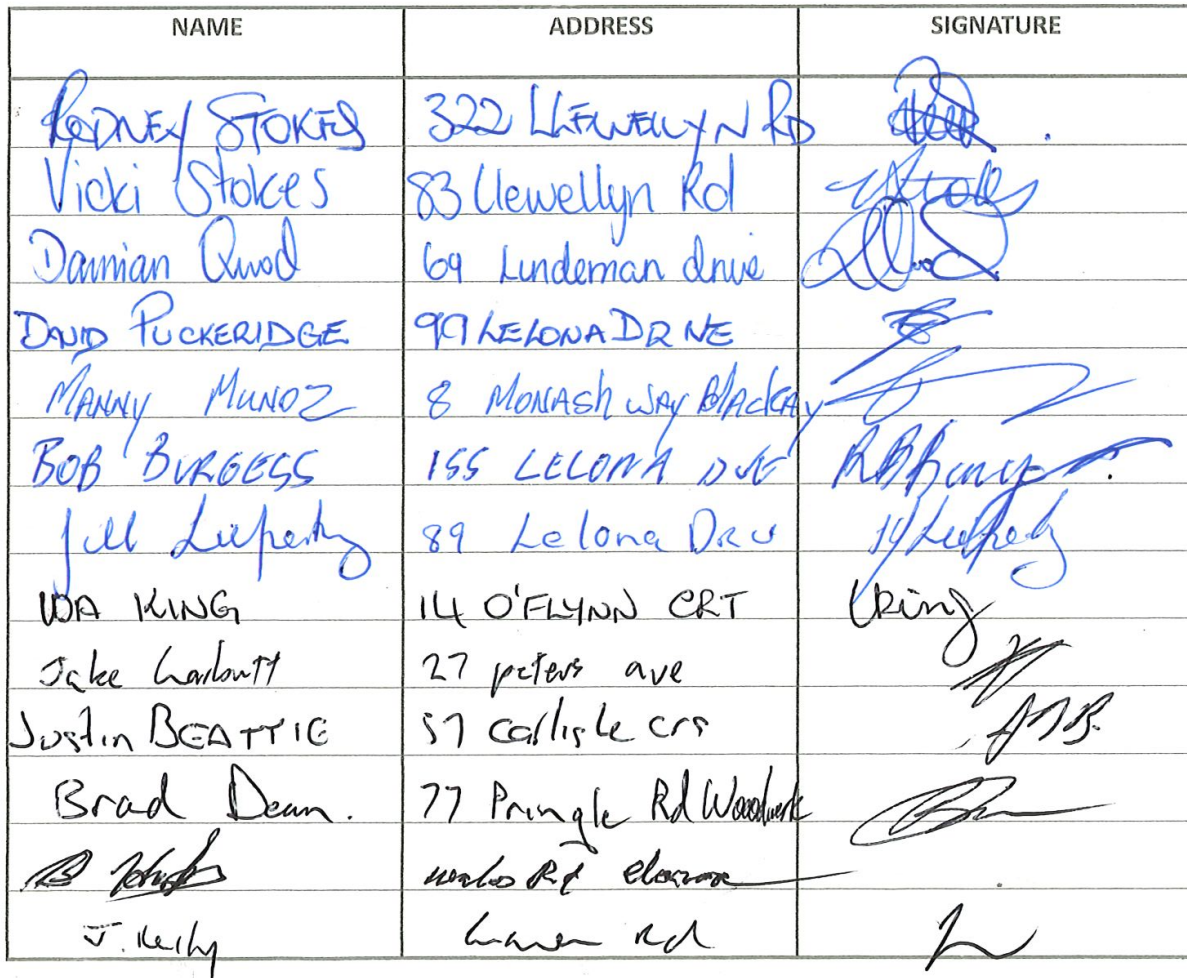 NAME ADDRESS SIGNATURE
RODNEY STOKES 322 LLEWELLYN RD
Vicki Stokes 83 Llewellyn Rd VStokes
Damian Quod 69 Lindeman drive
DAVID PUCKERIDGE 99 LELONA DRIVE
MANNY MUNOZ 8 MONASH WAY MACKAY
BOB BURGESS 155 LELONA DVE
Jill 89 Lelona
KING 14 O'FLYNN CRT King
Jake 27 peters ave
Justin BEATTIE 57 Carlisle crs
Brad Dean. 77 Pringle Rd
B Rd
J. Rd